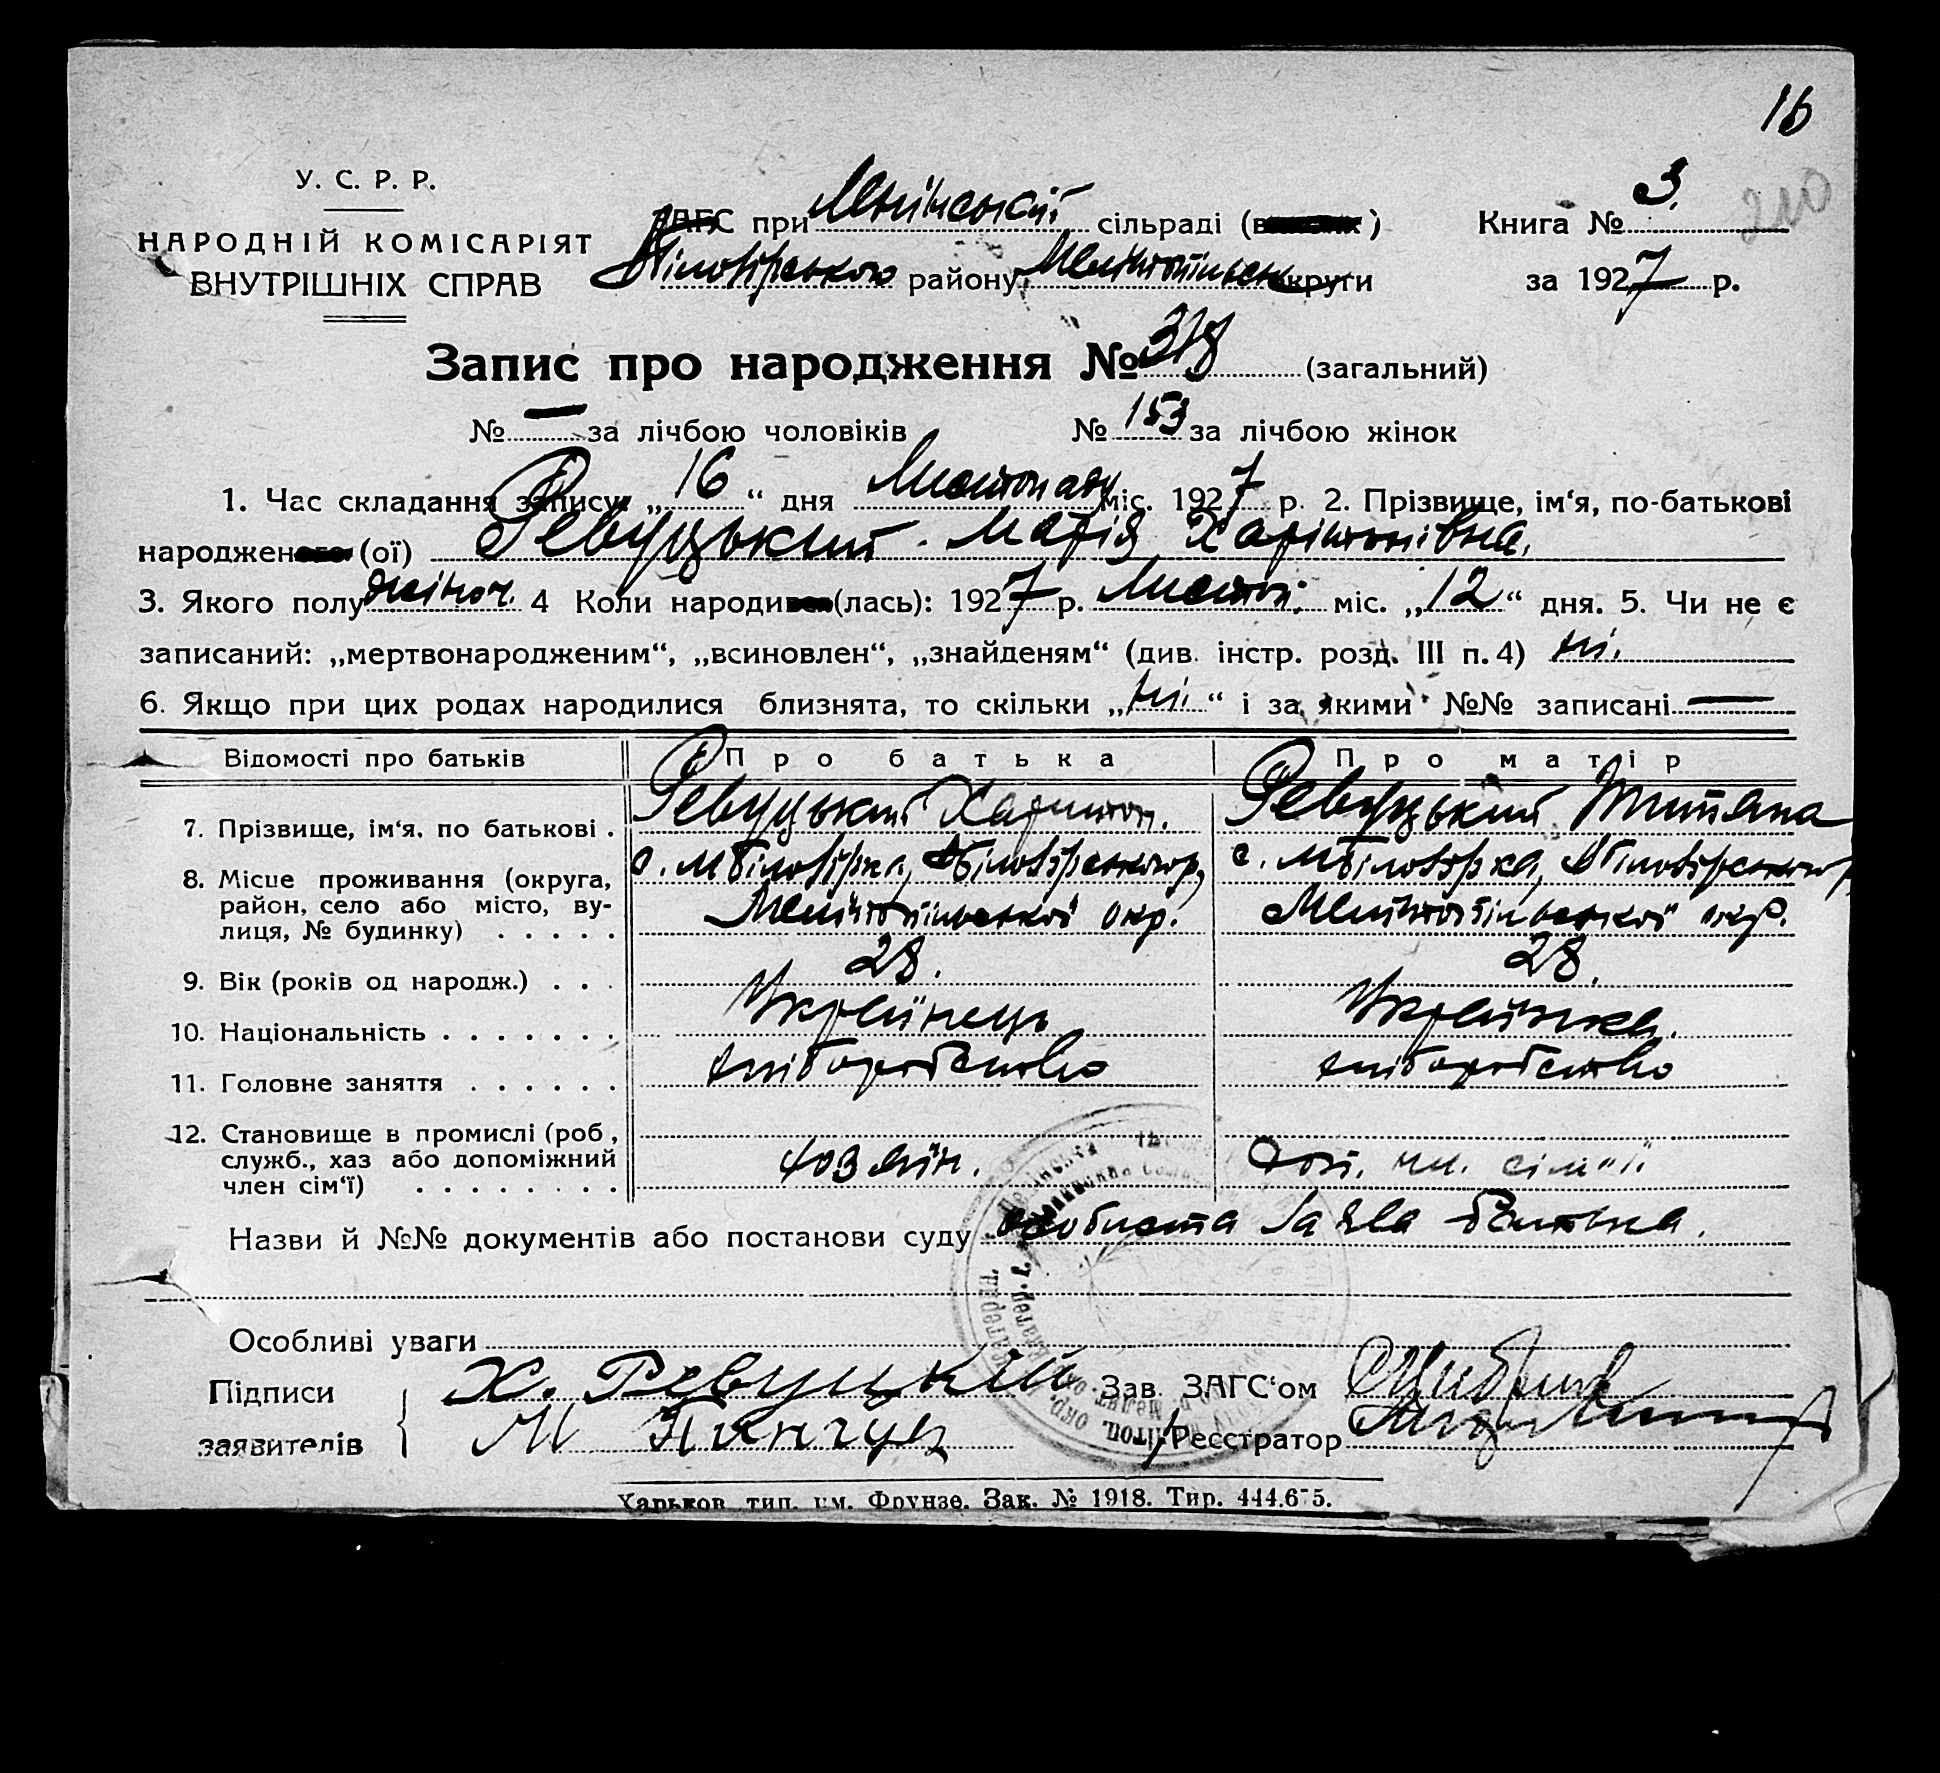 16
210
У. С. Р. Р.
НАРОДНІЙ КОМІСАРІЯТ
ВНУТРІШНІХ СПРАВ
ЗАГС при сільраді ( )
Біловірського району Мелітопільськ округи
Книга № 3.
за 1927 р.
Запис про народження № 318 (загальний)
№ — за лічбою чоловіків № 153 за лічбою жінок
1. Час складання запису: „16“ дня Листопаду міс. 1927 р. 2. Прізвище, ім‘я, по-батькові
народженого (ої) Ревуцький Марія Харітонівна.
3. Якого полу жіноч. 4 Коли народився (лась): 1927 р. Листоп. міс. „12“ дня. 5. Чи не є
записаний: „мертвонародженим“, „всиновлен“, „знайденям“ (див. інстр. розд. III п. 4) ні.
6. Якщо при цих родах народилися близнята, то скільки „ні.“ і за якими №№ записані —
Відомості про батьків Про батька Про матір
7. Прізвище, ім‘я, по батькові . Ревуцький Харитон. Ревуцький Титяна
8. Місце проживання (округа, с. Білов с. Білов
район, село або місто, ву- Мелітопільської окр. Мелітопільської окр.
лиця, № будинку) . . . . .
9. Вік (років од народж.) . . . 28. 28.
10. Національність . . . . . . . Українець Українка.
11. Головне заняття . . . . . . хліборобство хліборобство
12. Становище в промислі (роб,
служб., хаз або допоміжний хозяїн. Доп. чл. сім"ї.
член сім‘ї) . . . . . . . .
Назви й №№ документів або постанови суду особиста заява батька.
Особливі уваги
Підписи Х. Ревуцкий Зав. ЗАГС‘ом
заявителів М Реєстратор
Харьков, тип. им. Фрунзе. Зак. № 1918. Тир. 444.675.